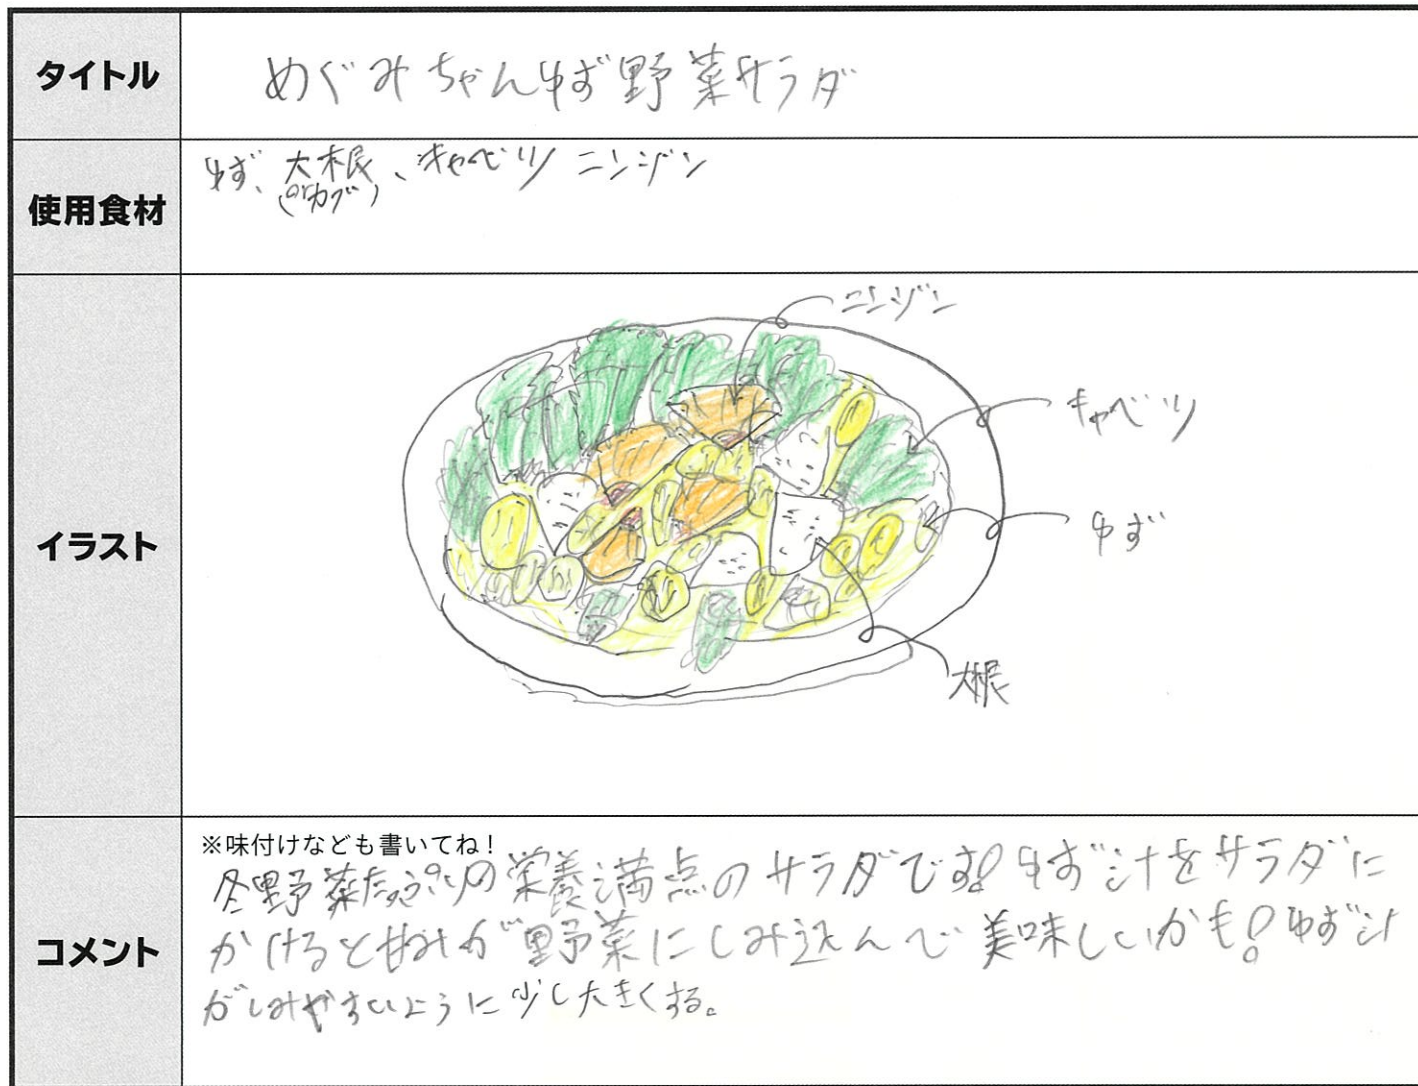 タイトル
めぐみちゃんゆず野菜サラダ
使用食材
ゆず、大根、キャベツ ニンジン
イラスト
ニンジン
キャベツ
ゆず
大根
コメント
※味付けなども書いてね！
冬野菜たっぷりの栄養満点のサラダです!ゆず汁をサラダに
かけると甘みが野菜にしみ込んで美味しいかも!ゆず汁
がしみやすいように少し大きくする。